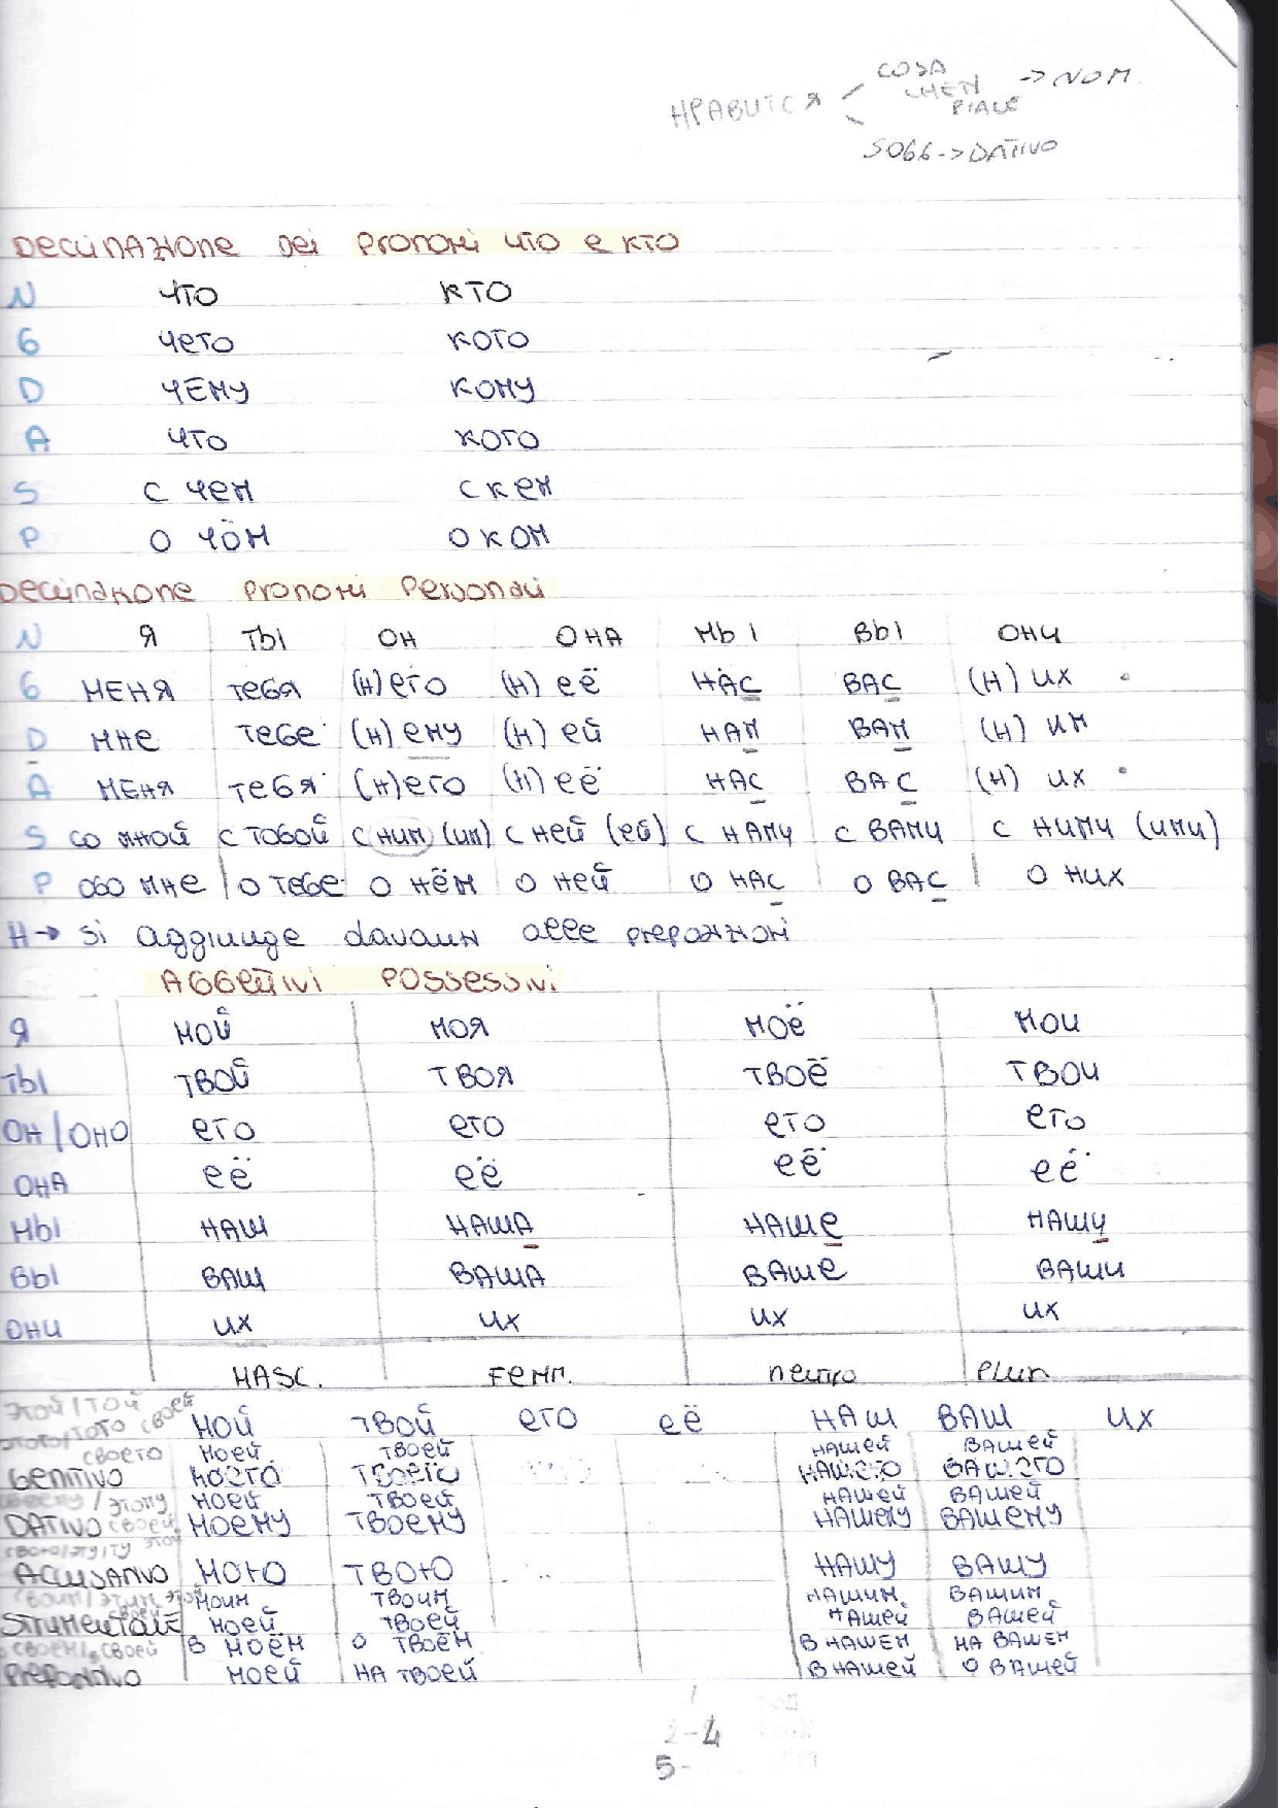 COSA
НРАВИТСЯ CHE TI -> NOM
PIACE
SOGG -> DATIVO
DECLINAZIONE DEI PRONOMI ЧТО E КТО
N ЧТО КТО
G ЧЕГО КОГО
D ЧЕМУ КОМУ
A ЧТО КОГО
S С ЧЕМ С КЕМ
P О ЧЁМ О КОМ
DECLINAZIONE PRONOMI PERSONALI
N Я ТЫ ОН ОНА МЫ ВЫ ОНИ
G МЕНЯ ТЕБЯ (Н)ЕГО (Н)ЕЁ НАС ВАС (Н)ИХ
D МНЕ ТЕБЕ (Н)ЕМУ (Н)ЕЙ НАМ ВАМ (Н)ИМ
A МЕНЯ ТЕБЯ (Н)ЕГО (Н)ЕЁ НАС ВАС (Н)ИХ
S СО МНОЙ С ТОБОЙ С НИМ (ИМ) С НЕЙ (ЕЙ) С НАМИ С ВАМИ С НИМИ (ИМИ)
P ОБО МНЕ О ТЕБЕ О НЁМ О НЕЙ О НАС О ВАС О НИХ
Н -> si aggiunge davanti alle preposizioni
AGGETTIVI POSSESSIVI
Я МОЙ МОЯ МОЁ МОИ
ТЫ ТВОЙ ТВОЯ ТВОЁ ТВОИ
ОН/ОНО ЕГО ЕГО ЕГО ЕГО
ОНА ЕЁ ЕЁ ЕЁ ЕЁ
МЫ НАШ НАША НАШЕ НАШИ
ВЫ ВАШ ВАША ВАШЕ ВАШИ
ОНИ ИХ ИХ ИХ ИХ
MASC. FEMM. NEUTRO PLUR.
ЭТОЙ/ТОЙ СВОЕЙ
ЭТОГО/ТОГО МОЙ ТВОЙ ЕГО ЕЁ НАШ ВАШ ИХ
СВОЕГО МОЕЙ ТВОЕЙ НАШЕЙ ВАШЕЙ
GENITIVO МОЕГО ТВОЕГО НАШЕГО ВАШЕГО
/ЭТОМУ МОЕЙ ТВОЕЙ НАШЕЙ ВАШЕЙ
DATIVO СВОЕЙ МОЕМУ ТВОЕМУ НАШЕМУ ВАШЕМУ
СВОЮ/ЭТУ/ТУ
ACCUSATIVO МОЮ ТВОЮ НАШУ ВАШУ
СВОИМ/ЭТИМ ЭТОЙ МОИМ ТВОИМ НАШИМ ВАШИМ
STRUMENTALE МОЕЙ ТВОЕЙ НАШЕЙ ВАШЕЙ
СВОЕМ/СВОЕЙ В МОЁМ О ТВОЁМ В НАШЕМ НА ВАШЕМ
PREPOSITIVO МОЕЙ НА ТВОЕЙ В НАШЕЙ О ВАШЕЙ
2-4
5-